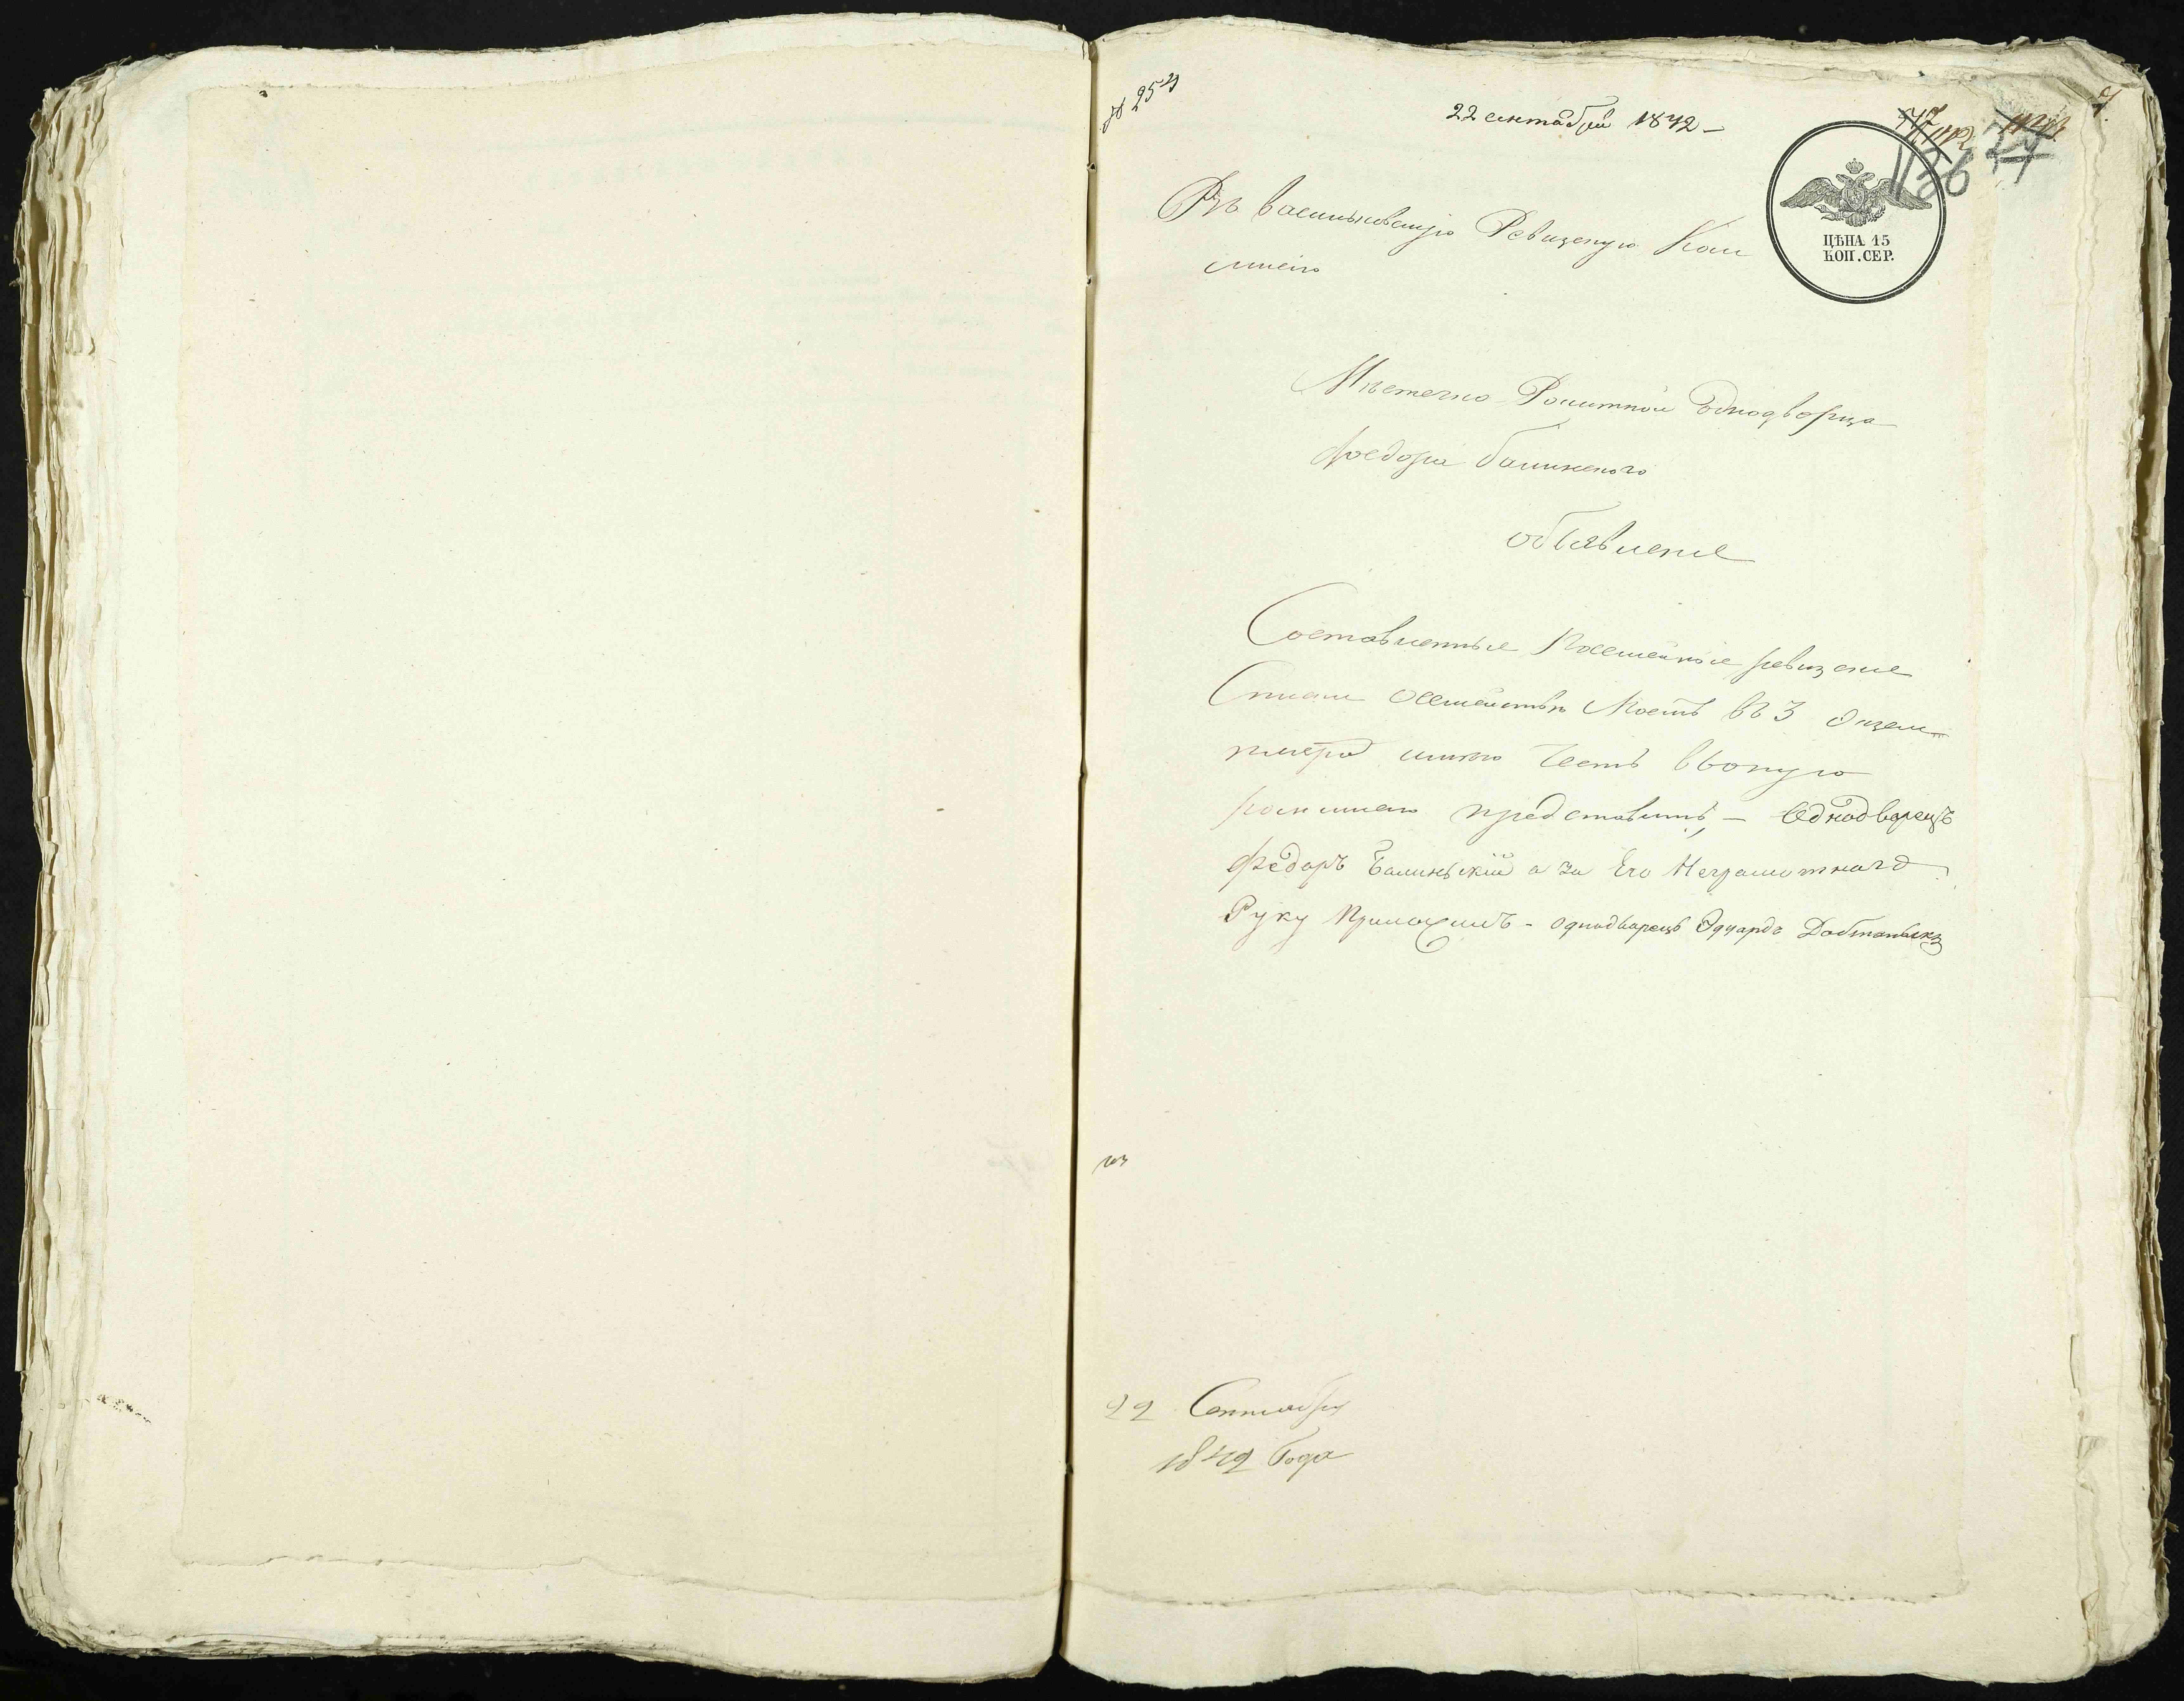 № 254
22 сентября 1842 –
136
ЦѢНА 15
КОП. СЕР.
Въ васильковскую Ревизскую Ком
мисию
Мѣстечка Рокитной Однодворца
федора балинского
объявленіе
Составленные Посемейные ревизские
Списки Осемействе Моемъ въ 3 Экзем
плярах имѣю Честь в оную
комисию представить, – Однодворецъ
федоръ балинский а за Его Неграмотнаго
Руку Приложилъ – однодворецъ Эдуардъ
22 Сентября
1842 Года